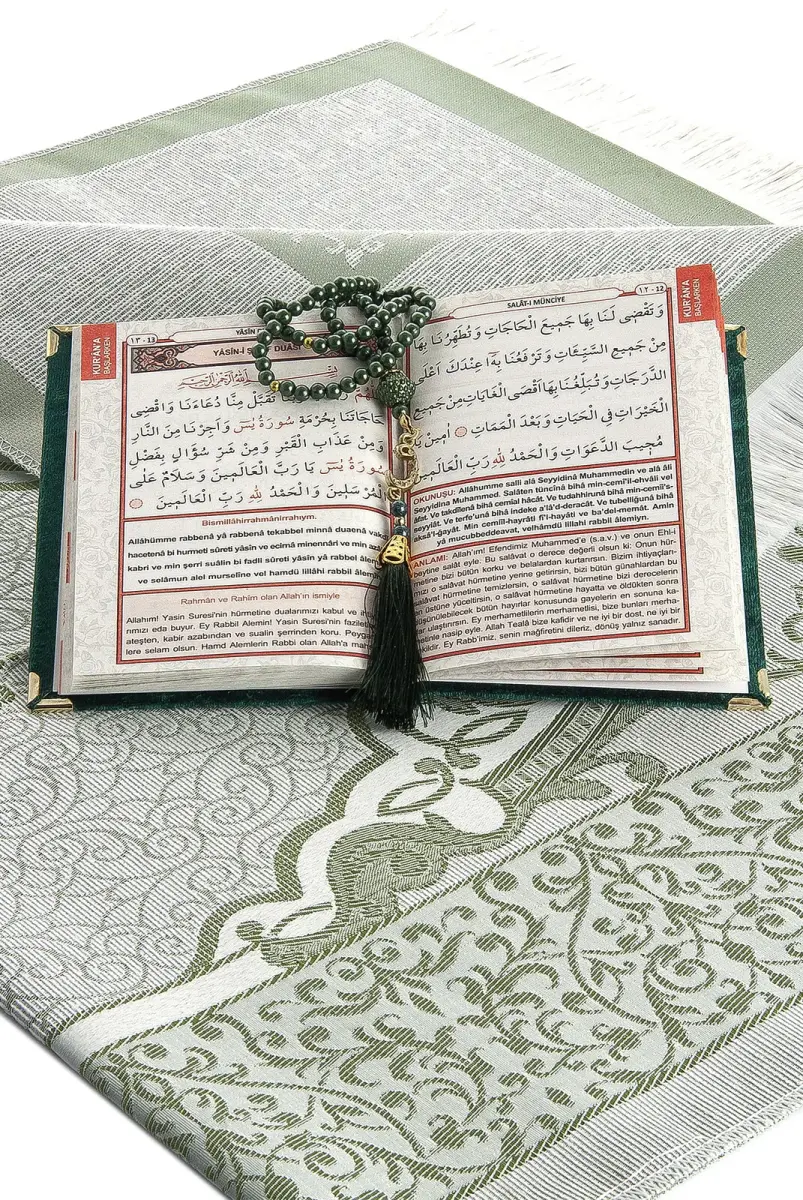 KUR'ÂN'A
BAŞLARKEN
١٣ - 13
YÂSİN
YÂSİN-İ Ş DUASI
تَقَبَّلْ مِنَّا دُعَاءَنَا وَاقْضِى
حَاجَاتَنَا بِحُرْمَةِ سُورَةُ يٰسٓ وَاَجِرْنَا مِنَ النَّارِ
وَمِنْ عَذَابِ الْقَبْرِ وَمِنْ شَرِّ سُؤَالٍ بِفَضْلِ
سُورَةُ يٰسٓ يَا رَبَّ الْعَالَمِينَ وَسَلَامٌ عَلَى
الْمُرْسَلِينَ وَالْحَمْدُ لِلّٰهِ رَبِّ الْعَالَمِينَ
Bismillâhirrahmânirrahıym.
Allâhümme rabbenâ yâ rabbenâ tekabbel minnâ duaenâ vakdı
hacetenâ bi hurmeti sûreti yâsîn ve ecirnâ minennâri ve min azâ
kabri ve min şerri suâlin bi fadli sûreti yâsîn yâ rabbel âlem
ve selâmun alel murselîne vel hamdü lillâhi rabbil âlem
Rahmân ve Rahîm olan Allah'ın ismiyle
Allahım! Yasin Suresi'nin hürmetine dualarımızı kabul ve ih
rımızı eda buyur. Ey Rabbil Alemin! Yasin Suresi'nin fazilet
ateşten, kabir azabından ve sualin şerrinden koru. Peyga
lere selam olsun. Hamd Alemlerin Rabbi olan Allah'a mah
SALÂT-I MÜNCİYE
١٢ - 12
KUR'ÂN'A
BAŞLARKEN
وَتَقْضٖى لَنَا بِهَا جَمِيعَ الْحَاجَاتِ وَتُطَهِّرُنَا بِهَا
مِنْ جَمِيعِ السَّيِّئَاتِ وَتَرْفَعُنَا بِهَٓا عِنْدَكَ اَعْلَى
الدَّرَجَاتِ وَتُبَلِّغُنَا بِهَا اَقْصَى الْغَايَاتِ مِنْ جَمِيعِ
الْخَيْرَاتِ فِى الْحَيَاتِ وَبَعْدَ الْمَمَاتِ اٰمِينَ يَا
مُجِيبَ الدَّعَوَاتِ وَالْحَمْدُ لِلّٰهِ رَبِّ الْعَالَمِينَ
OKUNUŞU: Allâhumme salli alâ Seyyidinâ Muhammedin ve alâ âli
Seyyidinâ Muhammed. Salâten tüncînâ bihâ min-cemî'il-ehvâli vel
âfat. Ve takdîlenâ bihâ cemîal hâcât. Ve tudahhirunâ bihâ min-cemîis-
seyyiât. Ve terfe'unâ bihâ indeke a'lâ'd-deracât. Ve tubelliğunâ bihâ
aksâ'l-ğayât. Min cemîil-hayrâti fi'l-hayâti ve ba'del-memât. Amin
yâ mucubbeddeavat, velhamdü lillahi rabbil âlemiyn.
ANLAMI: Allah'ım! Efendimiz Muhammed'e (s.a.v.) ve onun Ehl-i
beytine salât eyle. Bu salâvat o derece değerli olsun ki: Onun hür-
metine bizi bütün korku ve belalardan kurtarırsın. Bizim ihtiyaçları-
mızı o salâvat hürmetine yerine getirirsin, bizi bütün günahlardan bu
salâvat hürmetine temizlersin, o salâvat hürmetine bizi derecelerin
üstüne yüceltirsin, o salâvat hürmetine hayatta ve öldükten sonra
düşünülebilecek bütün hayırlar konusunda gayelerin en sonuna ka-
ulaştırırsın. Ey merhametlilerin merhametlisi, bize bunları merha-
nle nasip eyle. Allah Teala bize kafidir ve ne iyi bir dost, ne iyi bir
kildir. Ey Rabb'imiz, senin mağfiretini dileriz, dönüş yalnız sanadır.